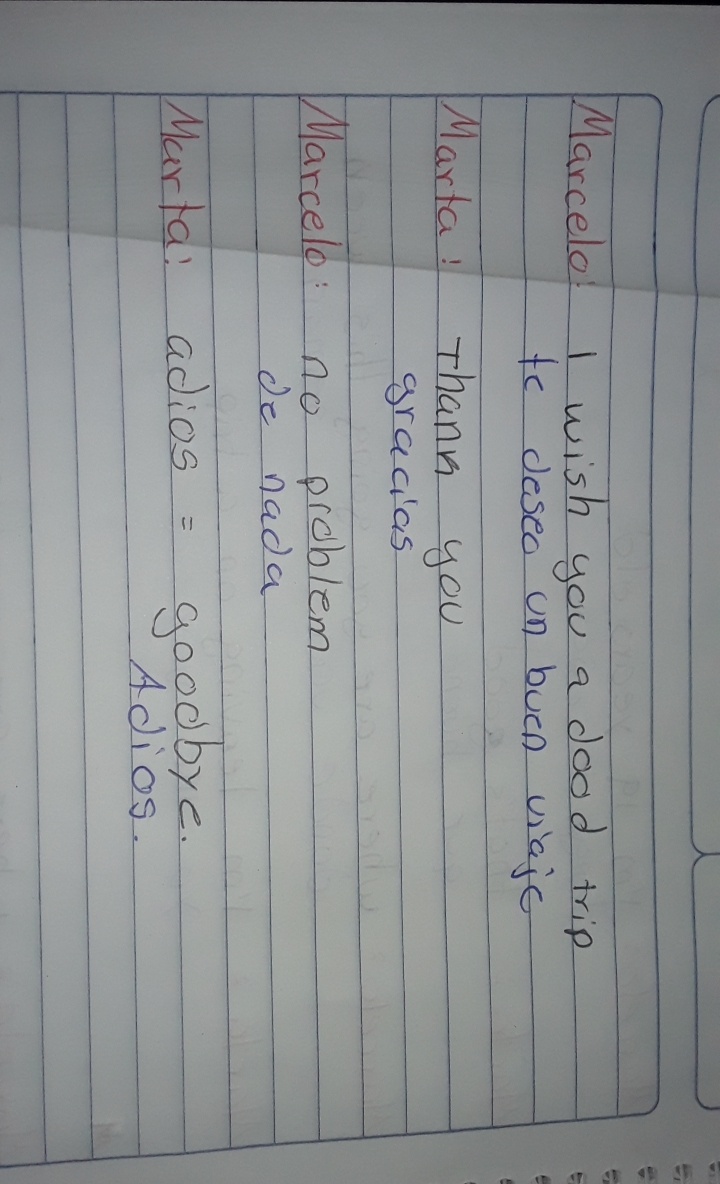 Marcelo: I wish you a dood trip
te deseo un buen viaje
Marta: Thann you
gracias
Marcelo: no problem
de nada
Marta: adios = goodbye.
Adios.